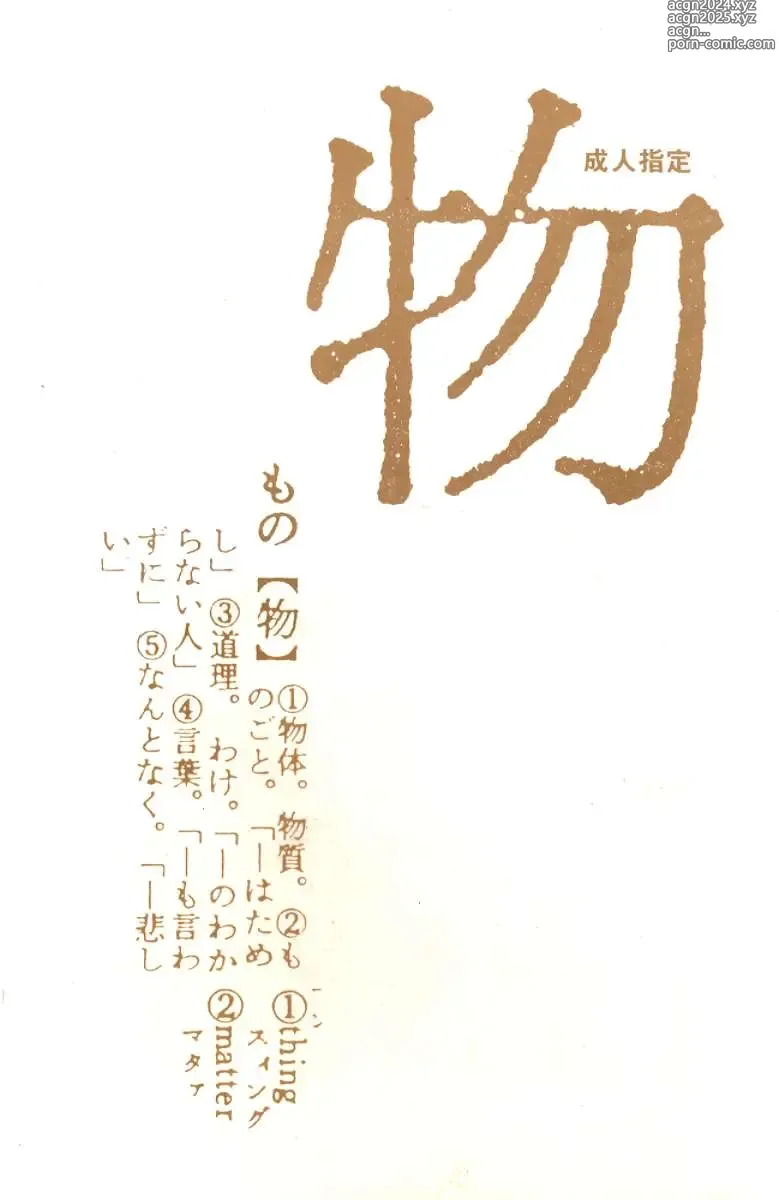 acgn2024.xyz
acgn2025.xyz
acgn...
porn-comic.com
物
成人指定
もの【物】①物体。物質。②も
のごと。「ーはため
し」③道理。わけ。「ーのわか
らない人」④言葉。「ーも言わ
ずに」⑤なんとなく。「ー悲し
い」
①thing
スィング
②matter
マタァ